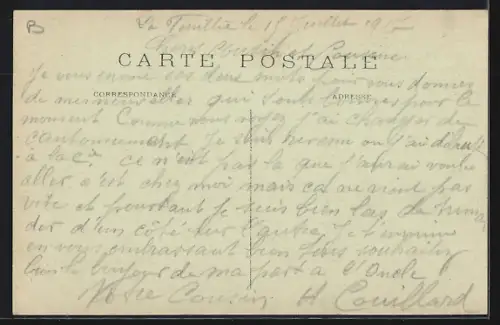 B
La                 le 15 Juillet 19
Chers Cousin et Cousine
CARTE POSTALE
Je vous envoie ces deux mots pour vous donner
CORRESPONDANCE ADRESSE
de mes nouvelles qui sont bonnes pour le
moment Comme vous voyez j'ai changer de
cantonnement Je suis           ou j'ai
a la Cie ce n'est pas la que j'aurai voulu
aller c'est chez moi mais ca ne vient pas
vite et pourtant je suis bien las de
der d'un côté sur l'autre Je termine
en vous embrassant bien      souhaitez
bien le bonjour de ma part a l'Oncle
Votre Cousin H Couillard